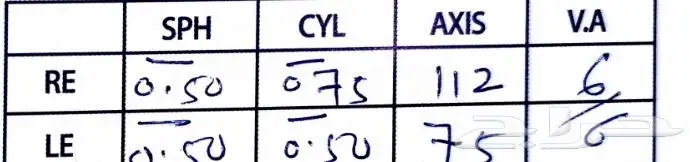 SPH CYL AXIS V.A
RE -0.50 -0.75 112 6/6
LE -0.50 -0.50 75
حراج